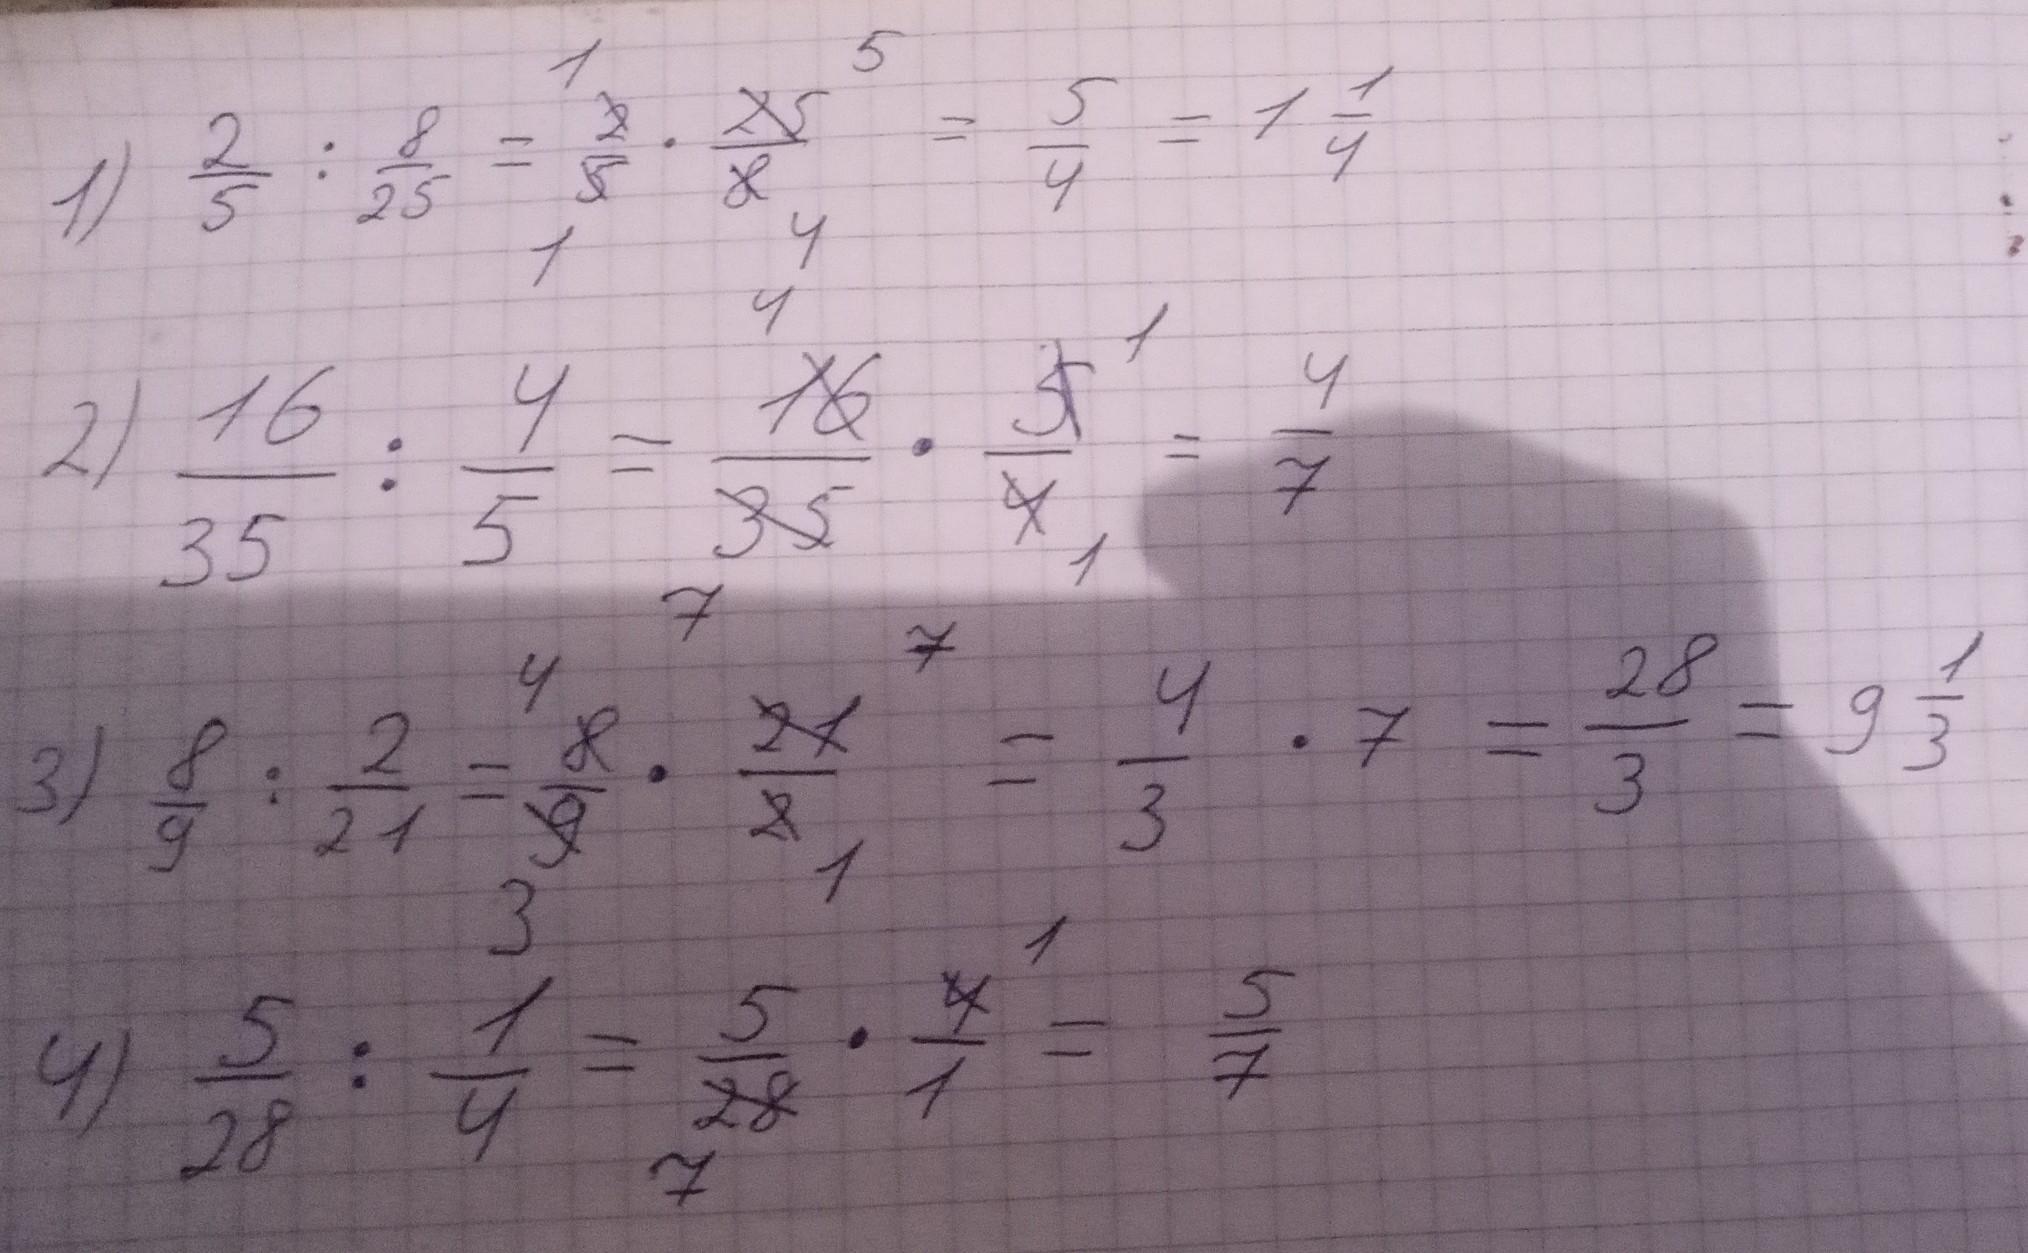 1) 2/5 : 8/25 = 2/5 · 25/8 = 5/4 = 1 1/4
2) 16/35 : 4/5 = 16/35 · 5/4 = 4/7
3) 8/9 : 2/21 = 8/9 · 21/2 = 4/3 · 7 = 28/3 = 9 1/3
4) 5/28 : 1/4 = 5/28 · 4/1 = 5/7